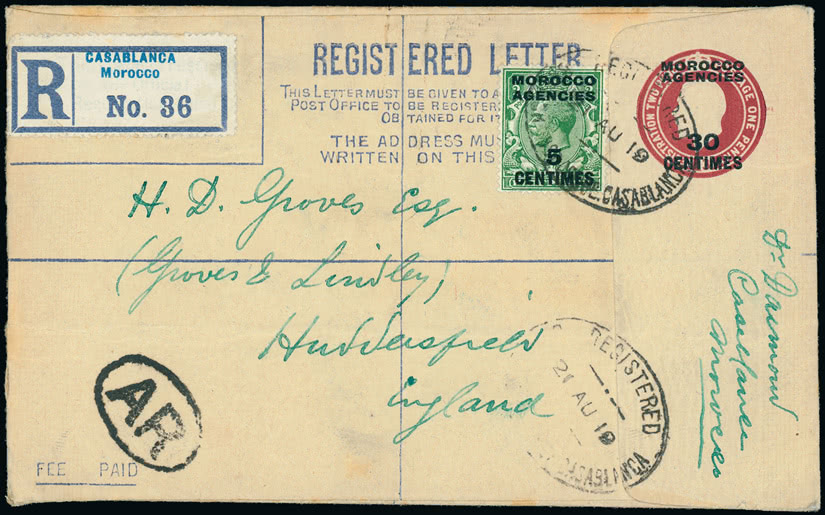 CASABLANCA
Morocco
R No. 36
REGISTERED LETTER
THIS LETTER MUST BE GIVEN TO A
POST OFFICE TO BE REGISTER
OBTAINED FOR IT
THE ADDRESS MU
WRITTEN ON THIS
MOROCCO
AGENCIES
5
CENTIMES
MOROCCO
AGENCIES
30
CENTIMES
AGE ONE PEN
STRATION TWO P
AU 19
CASABLANCA
H. D. Groves Esq.
(Groves & Lindley)
Huddersfield
England
Casablanca
Morocco
REGISTERED
21 AU 19
CASABLANCA
AR
FEE PAID